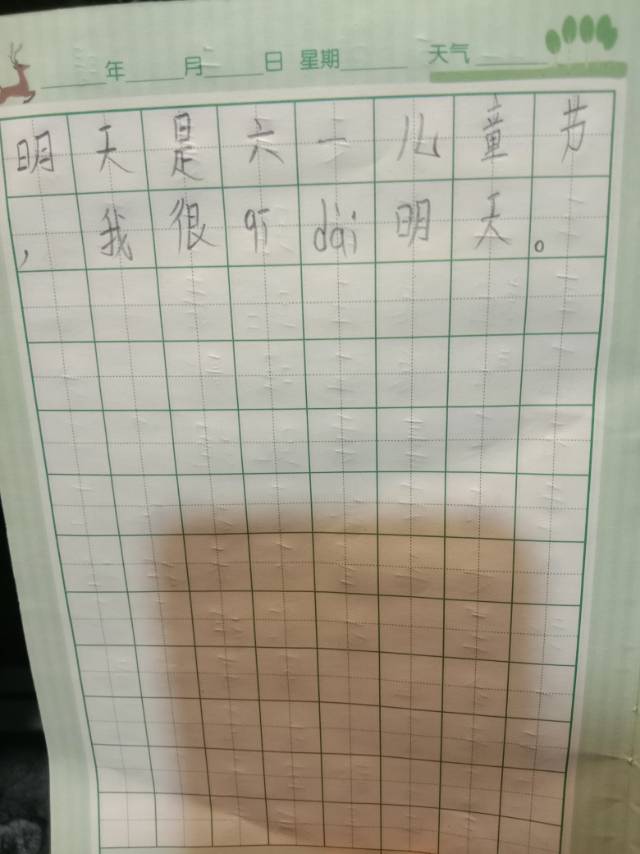 年 月 日 星期 天气
明天是六一儿童节
，我很qī dài明天。